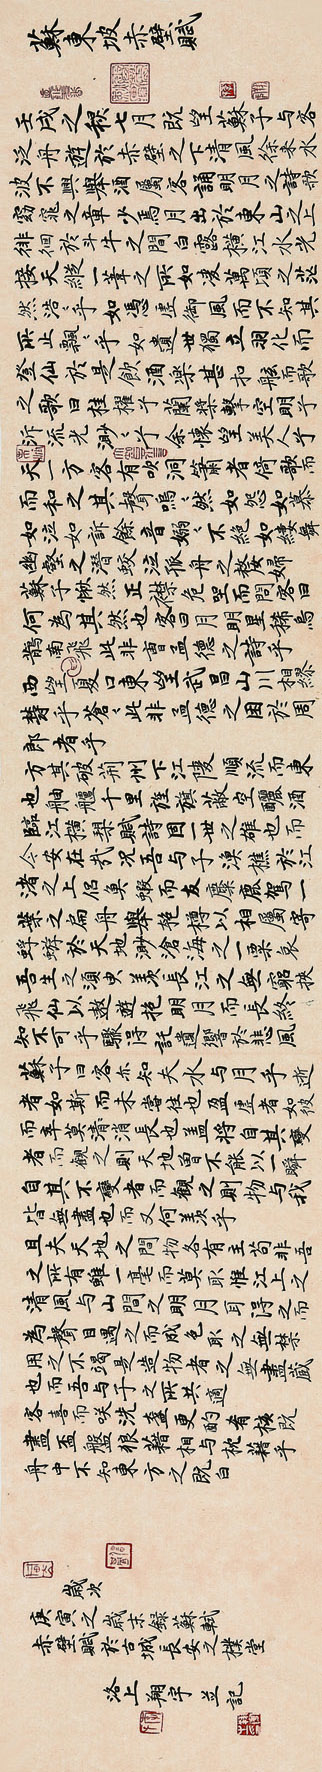 蘇東坡赤壁賦
壬戌之穐七月既望蘇子与客
泛舟遊於赤壁之下清風徐来水
波不興舉酒屬客誦明月之詩歌
窈窕之章少焉月出於東山之上
徘徊於斗牛之間白露橫江水光
接天縱一葦之所如凌萬頃之茫
然浩〻乎如馮虛御風而不知其
所止飄〻乎如遺世獨立羽化而
登仙於是飲酒樂甚扣舷而歌
之歌曰桂櫂兮蘭槳擊空明兮
泝流光渺〻兮余懷望美人兮
天一方客有吹洞簫者倚歌而
而和之其聲嗚〻然如怨如慕
如泣如訴餘音嫋〻不絕如縷舞
幽壑之潛蛟泣孤舟之嫠婦
蘇子愀然正襟危坐而問客曰
何為其然也客曰月明星稀烏
鵲南飛此非曹孟德之詩乎
西望夏口東望武昌山川相繆
鬱乎蒼〻此非孟德之困於周
郎者乎
方其破荊州下江陵順流而東
也舳艫千里旌旗蔽空釃酒
臨江橫槊賦詩固一世之雄也而
今安在哉況吾与子漁樵於江
渚之上侶魚蝦而友麋鹿駕一
葉之扁舟舉匏樽以相屬寄
蜉蝣於天地渺滄海之一粟哀
吾生之須臾羨長江之無窮挾
飛仙以遨遊抱明月而長終
知不可乎驟得託遺響於悲風
蘇子曰客亦知夫水与月乎逝
者如斯而未嘗往也盈虛者如彼
而卒莫清消長也蓋將自其變
者而觀之則天地曾不能以一瞬
自其不變者而觀之則物与我
皆無盡也而又何羨乎
且夫天地之間物各有主苟非吾
之所有雖一毫而莫取惟江上之
清風与山間之明月耳得之而
為聲目遇之而成色取之無禁
用之不竭是造物者之無盡藏
也而吾与子之所共適
客喜而咲洗盞更酌肴核既
盡盃盤狼藉相与枕藉乎
舟中不知東方之既白
歲次
庚寅之歲末録蘇軾
赤壁賦於古城長安之樸堂
洛上翔宇並記